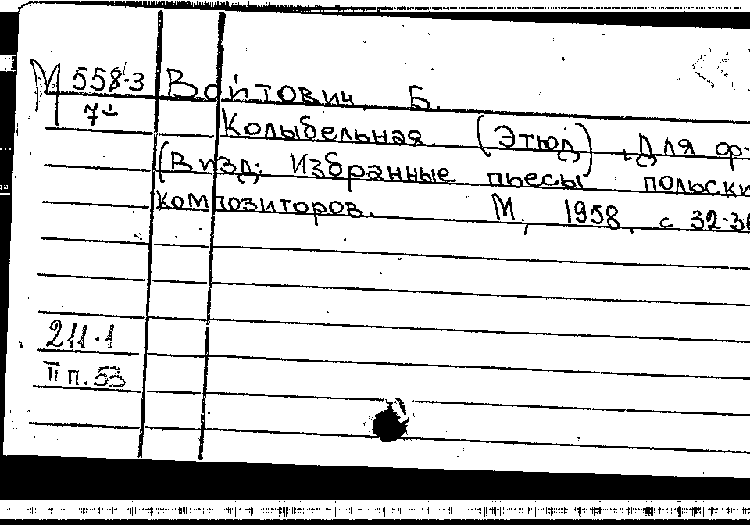 М 558-3 Войтович, Б.
7- Колыбельная (Этюд). Для ф-
(В изд: Избранные пьесы польски
композиторов. М, 1958, с 32-36
211.1
П п. 53